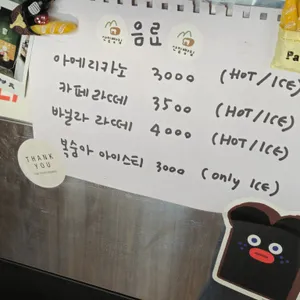 음료
아메리카노 3000 (HOT/ICE)
카페라떼 3500 (HOT/ICE)
바닐라 라떼 4000 (HOT/ICE)
복숭아 아이스티 3000 (only ICE)
THANK
YOU
Pa